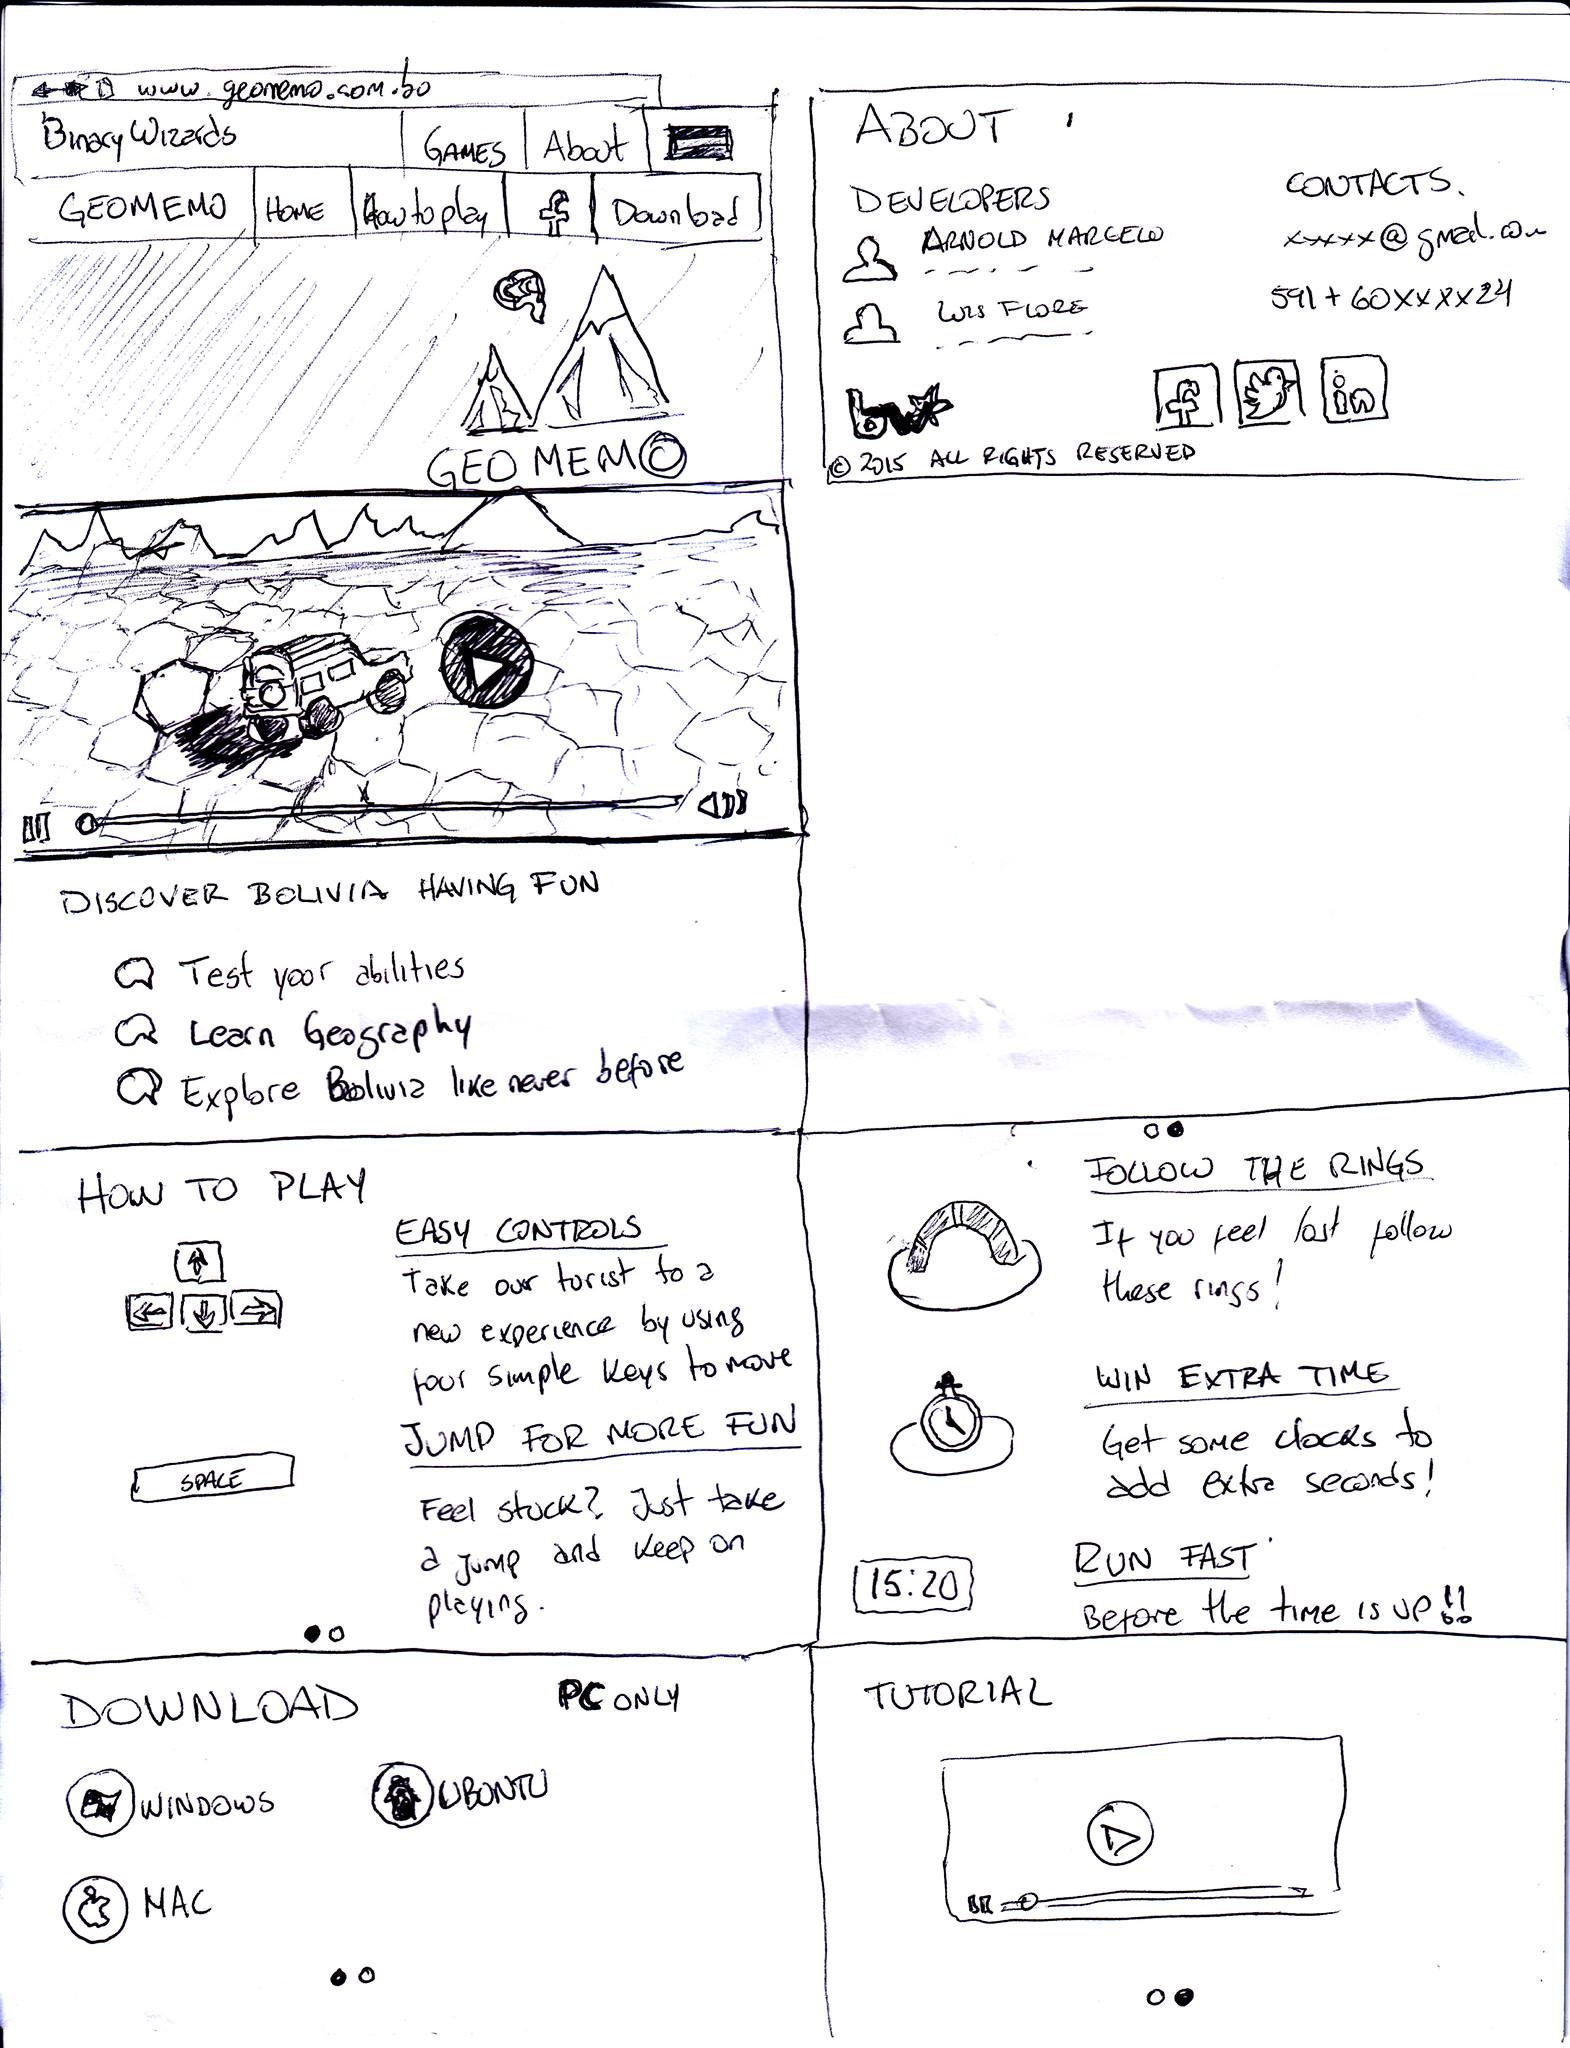 www.geomemo.com.bo
Binary Wizards
GAMES
About
GEOMEMO
HOME
How to play
f
Download
GEO MEMO
DISCOVER BOLIVIA HAVING FUN
Test your abilities
Learn Geography
Explore Bolivia like never before
HOW TO PLAY
EASY CONTROLS
Take our turist to a
new experience by using
four simple keys to move
JUMP FOR MORE FUN
SPACE
Feel stuck? Just take
a jump and keep on
playing.
DOWNLOAD
PC ONLY
WINDOWS
UBUNTU
MAC
ABOUT
DEVELOPERS
CONTACTS.
ARNOLD MARCELO
xxxxx@gmail.com
LUIS FLORE
591+60XXXX24
bw
f
in
© 2015 ALL RIGHTS RESERVED
FOLLOW THE RINGS
If you feel lost follow
these rings!
WIN EXTRA TIME
Get some clocks to
add extra seconds!
RUN FAST
15:20
Before the time is up!!
TUTORIAL